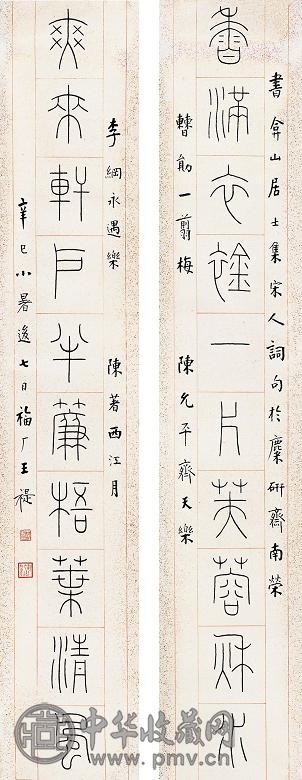 書弇山居士集宋人詞句於麋研齋南榮
香滿衣一片芙蓉秋水
曹勛一翦梅 陳允平齊天樂
李綱永遇樂 陳著西江月
爽來軒戶半簾梧葉清風
辛巳小暑後七日福厂王禔
中华收藏网
www.pmv.cn